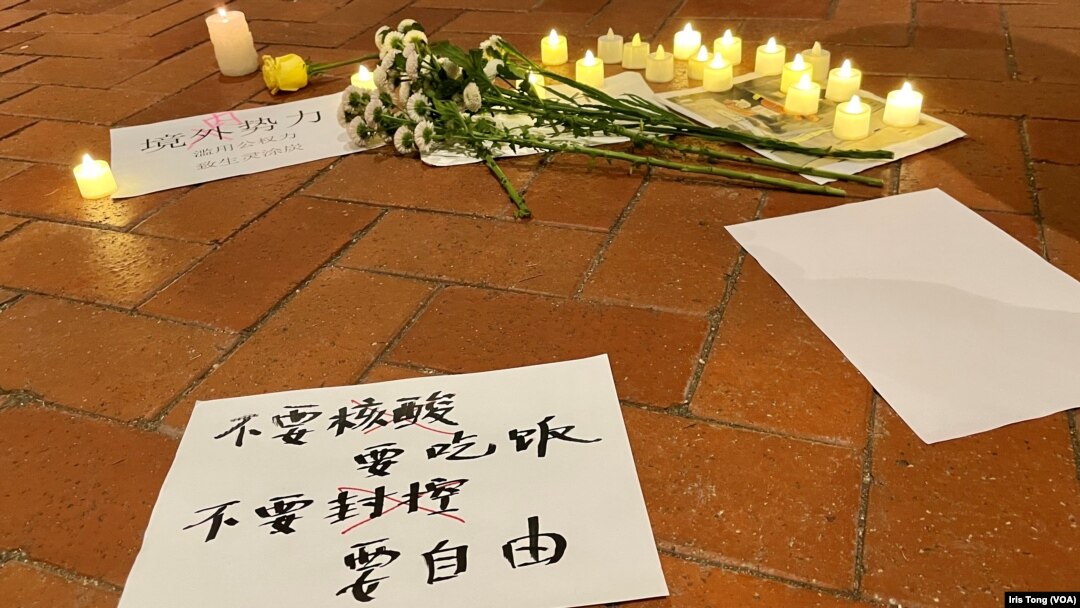 内
境外势力
滥用公权力
致生灵涂炭
不要核酸
要吃饭
不要封控
要自由
Iris Tong (VOA)